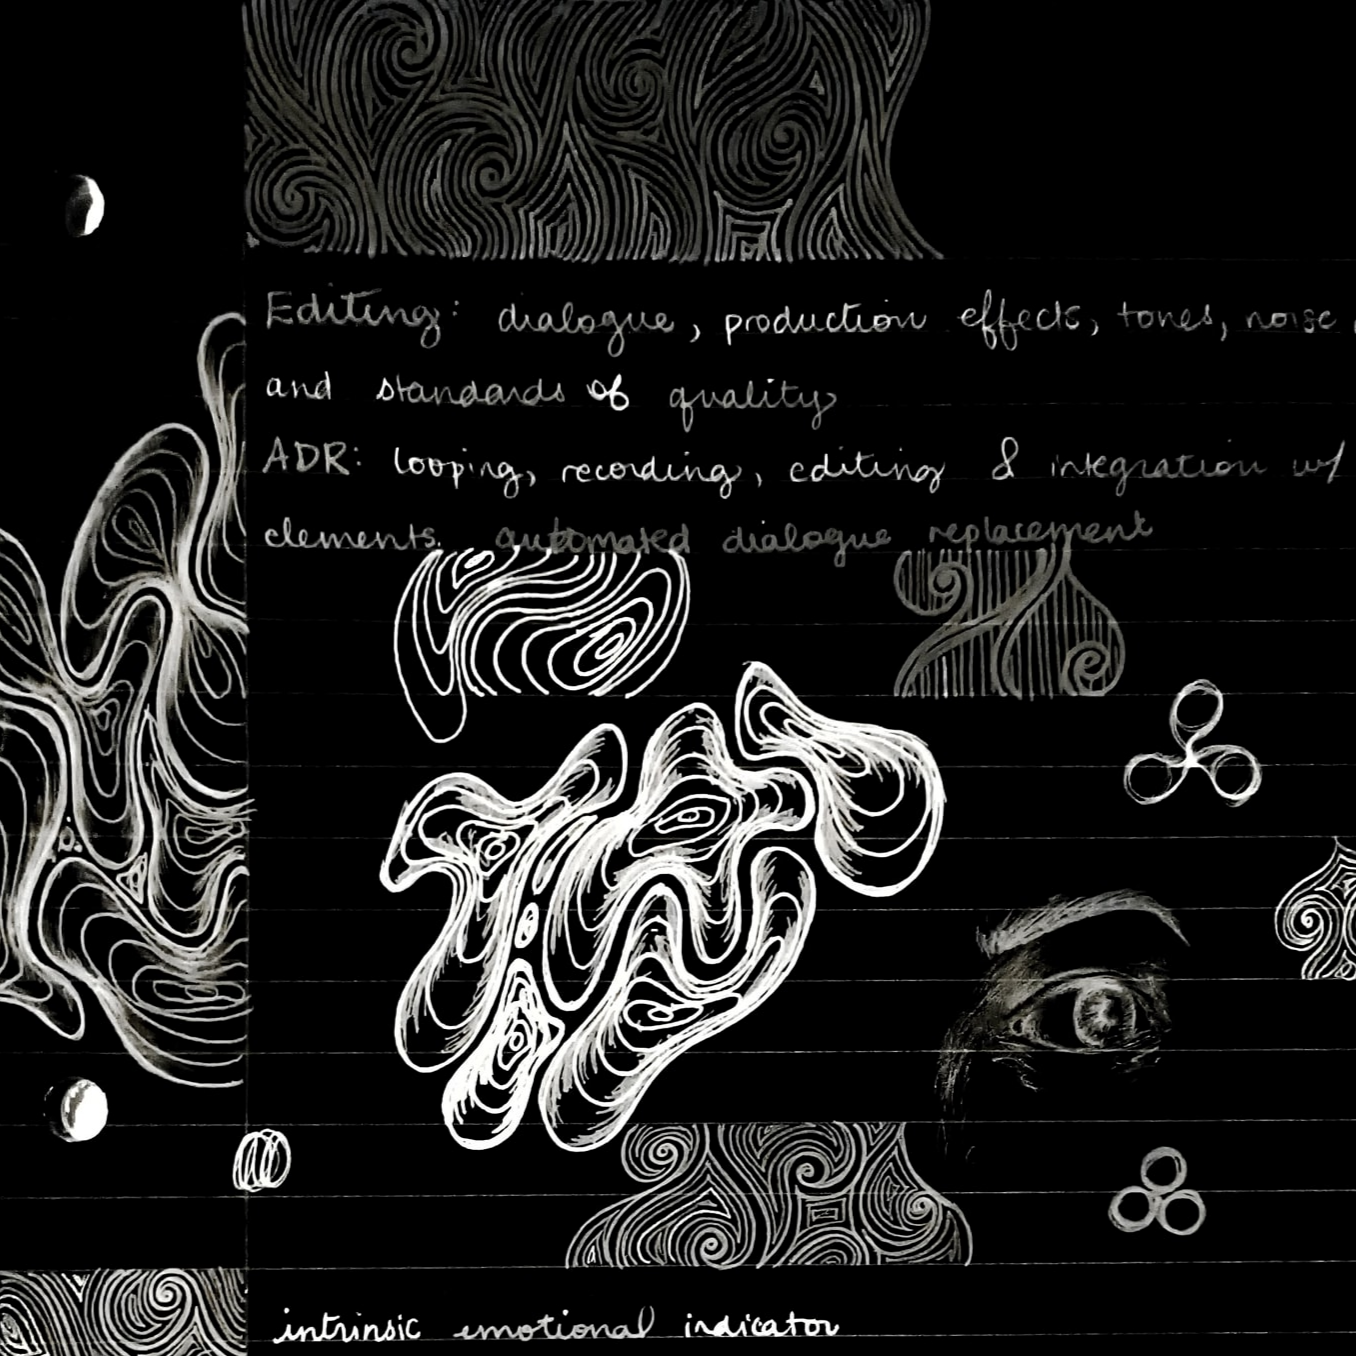 Editing: dialogue, production effects, tones, noise,
and standards of quality
ADR: looping, recording, editing & integration w/
elements. automated dialogue replacement
intrinsic emotional indicator